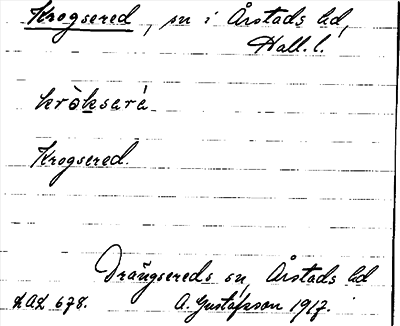 Krogsered, sn i Årstads hd,
Hall. l.
kròksarà
Krogsered.
Drängsereds sn, Årstads hd
LAL 678. A. Gustafsson 1917.